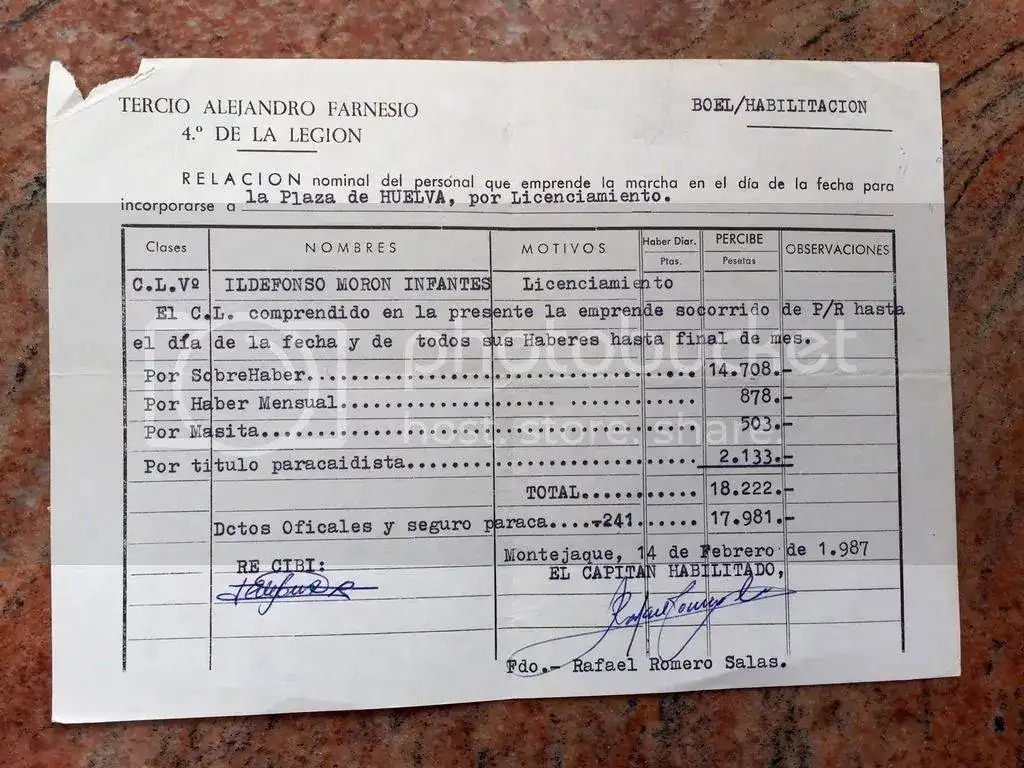 TERCIO ALEJANDRO FARNESIO
4.º DE LA LEGION
BOEL/HABILITACION
RELACION nominal del personal que emprende la marcha en el día de la fecha para
incorporarse a la Plaza de HUELVA, por Licenciamiento.
Clases NOMBRES MOTIVOS Haber Diar. Ptas. PERCIBE Pesetas OBSERVACIONES
C.L.Vº ILDEFONSO MORON INFANTES Licenciamiento
El C.L. comprendido en la presente la emprende socorrido de P/R hasta
el día de la fecha y de todos sus Haberes hasta final de mes.
Por SobreHaber.......................................... 14.708.-
Por Haber Mensual....................................... 878.-
Por Masita.............................................. 503.-
Por titulo paracaidista................................. 2.133.-
TOTAL........... 18.222.-
Dctos Oficales y seguro paraca....-241...... 17.981.-
Montejaque, 14 de Febrero de 1.987
RE CIBI:
EL CAPITAN HABILITADO,
Fdo.- Rafael Romero Salas.
photobucket
host. store. share.